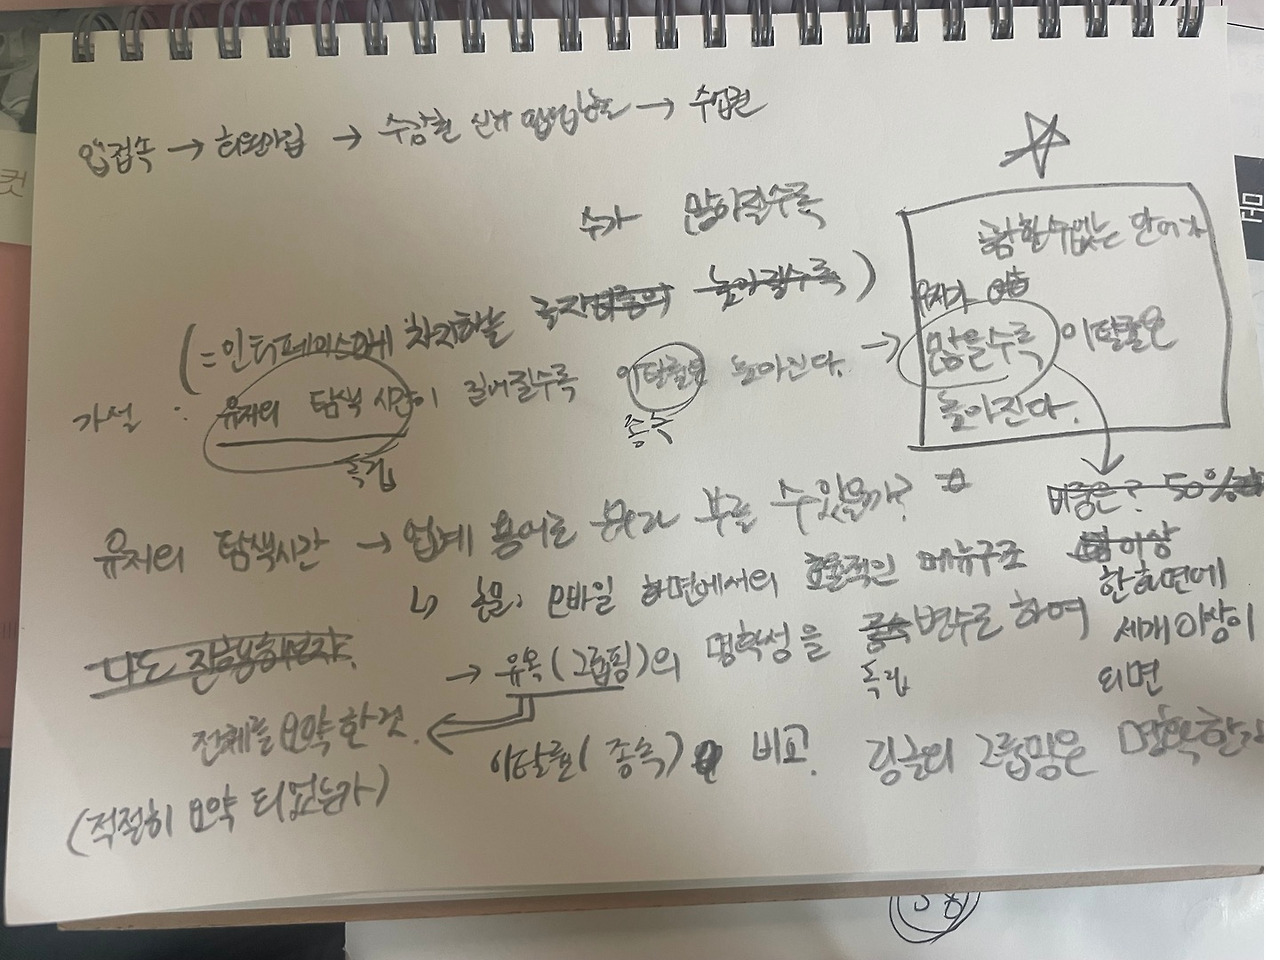 앱접속 → 회원가입 → 수강권 신규 팝업창 → 수업권
수가 많아질수록
(= 인터페이스에 차지하는 글자비중이 높아질수록)
가설 : 유저의 탐색 시간이 길어질수록 이탈률은 높아진다. →
독립
종속
공감할수없는 단어가
유저가
많을수록 이탈률은
높아진다.
비중은? 50%
이상
한화면에
세개이상이
되면
유저의 탐색시간 → 업계 용어로 뭐라 부를 수있을까?
↳ 논문: 모바일 화면에서의 효율적인 메뉴구조
나도 진행해보자.
→ 유목(그룹핑)의 명확성을 변수로 하여
독립
전체를 요약한것.
이탈률(종속) 비교. 링글의 그룹핑은 명확한가
(적절히 요약 되었는가)